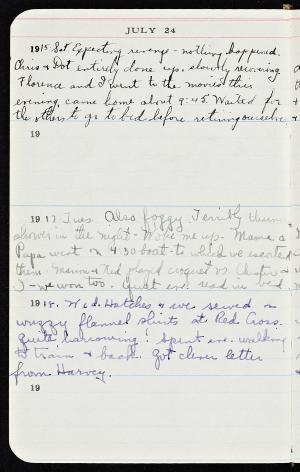 JULY 24
1915 Sat Expecting revenge - nothing happened.
Chris & Dot entirely done up. slowly recovering
Florence and I went to the movies this
evening, came home about 9:45. Waited for
the others to go to bed before retiring ourselves
19
1917 Tues Also foggy. Terribly
shower in the night - Woke me up. Mama &
Papa went on 4:30 boat - to which we escorted
them. & Ned played croquet vs. &
I - we won too. Quiet eve. read in bed.
1918. Wed. Hatches & we sewed on
wuzzy flannel shirts at Red Cross.
Quite harrowing! Spent eve. walking
to train & back. Got clever letter
from Harvey.
19